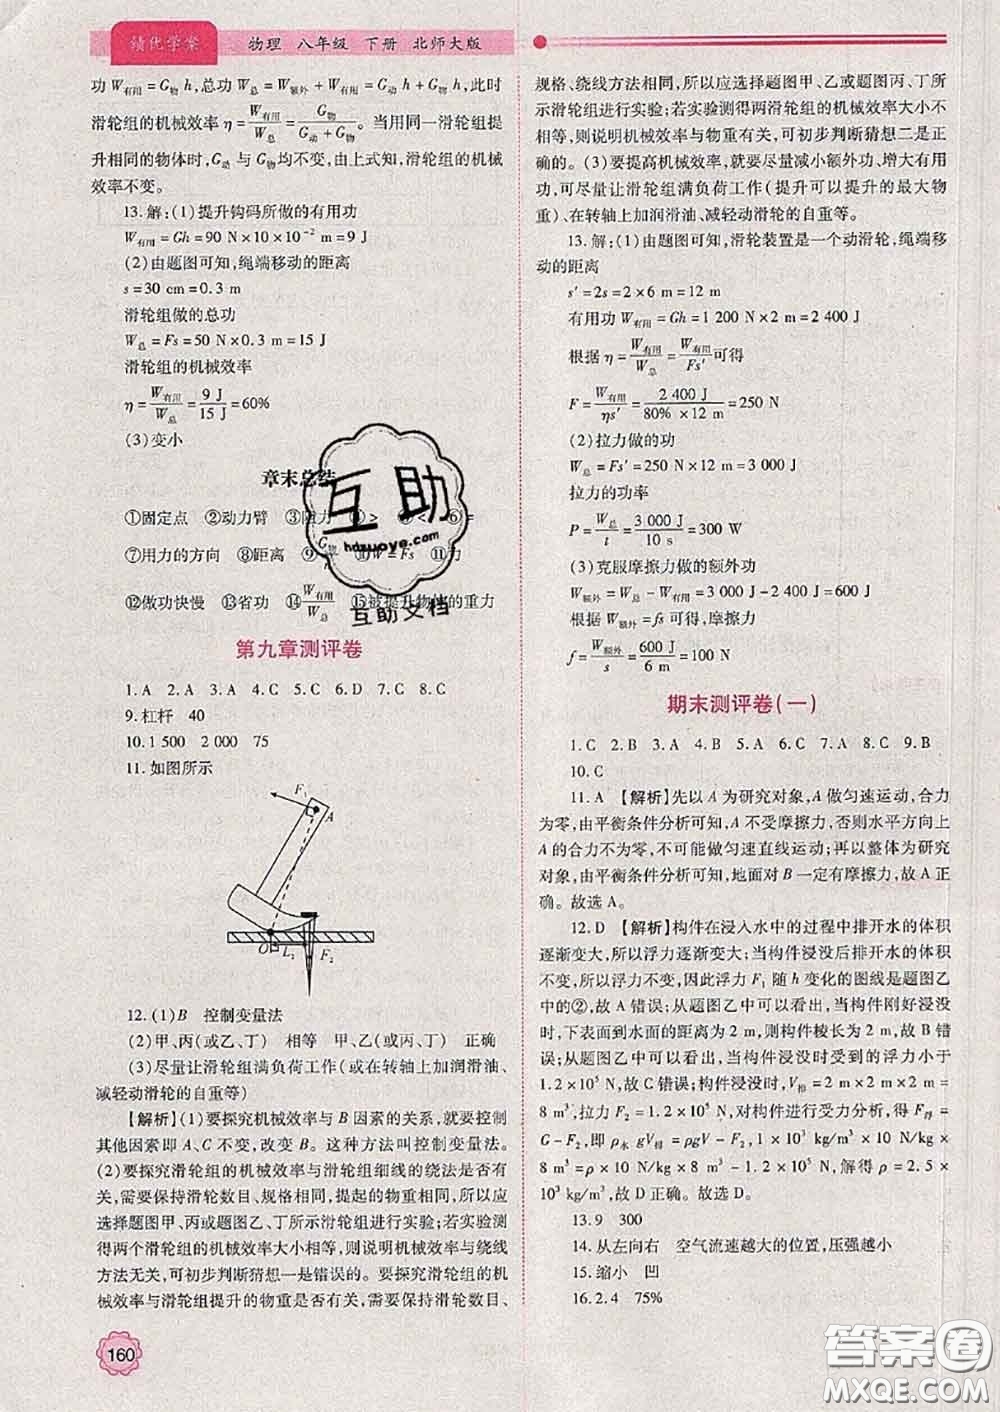 绩优学案 物理 八年级 下册 北师大版
功W有用=G物 h,总功W总=W额外+W有用=G动 h+G物 h,此时
滑轮组的机械效率η=W有用/W总=G物/(G动+G物)。当用同一滑轮组提
升相同的物体时,G动与G物均不变,由上式知,滑轮组的机械
效率不变。
13.解:(1)提升钩码所做的有用功
W有用=Gh=90 N×10×10⁻² m=9 J
(2)由题图可知,绳端移动的距离
s=30 cm=0.3 m
滑轮组做的总功
W总=Fs=50 N×0.3 m=15 J
滑轮组的机械效率
η=W有用/W总=9 J/15 J=60%
(3)变小
章末总结
①固定点 ②动力臂 ③阻力 > < ⑥=
⑦用力的方向 ⑧距离 ⑨G物 W=Fs ⑪力
⑫做功快慢 ⑬省功 ⑭W有用/W总 ⑮被提升物体的重力
第九章测评卷
1.A 2.A 3.A 4.C 5.C 6.D 7.C 8.C
9.杠杆 40
10.1 500 2 000 75
11.如图所示
F₁
A
O
L₂
F₂
12.(1)B 控制变量法
(2)甲、丙(或乙、丁) 相等 甲、乙(或丙、丁) 正确
(3)尽量让滑轮组满负荷工作(或在转轴上加润滑油、
减轻动滑轮的自重等)
【解析】(1)要探究机械效率与B因素的关系,就要控制
其他因素即A、C不变,改变B。这种方法叫控制变量法。
(2)要探究滑轮组的机械效率与滑轮组细线的绕法是否有
关,需要保持滑轮数目、规格相同,提起的物重相同,所以应
选择题图甲、丙或题图乙、丁所示滑轮组进行实验;若实验测
得两个滑轮组的机械效率大小相等,则说明机械效率与绕线
方法无关,可初步判断猜想一是错误的。要探究滑轮组的机
械效率与滑轮组提升的物重是否有关,需要保持滑轮数目、
160
规格、绕线方法相同,所以应选择题图甲、乙或题图丙、丁所
示滑轮组进行实验;若实验测得两滑轮组的机械效率大小不
相等,则说明机械效率与物重有关,可初步判断猜想二是正
确的。(3)要提高机械效率,就要尽量减小额外功、增大有用
功,可尽量让滑轮组满负荷工作(提升可以提升的最大物
重)、在转轴上加润滑油、减轻动滑轮的自重等。
13.解:(1)由题图可知,滑轮装置是一个动滑轮,绳端移
动的距离
s′=2s=2×6 m=12 m
有用功W有用=Gh=1 200 N×2 m=2 400 J
根据η=W有用/W总=W有用/Fs′可得
F=W有用/ηs′=2 400 J/(80%×12 m)=250 N
(2)拉力做的功
W总=Fs′=250 N×12 m=3 000 J
拉力的功率
P=W总/t=3 000 J/10 s=300 W
(3)克服摩擦力做的额外功
W额外=W总-W有用=3 000 J-2 400 J=600 J
根据W额外=fs可得,摩擦力
f=W额外/s=600 J/6 m=100 N
期末测评卷(一)
1.C 2.B 3.A 4.B 5.A 6.C 7.A 8.C 9.B
10.C
11.A 【解析】先以A为研究对象,A做匀速运动,合力
为零,由平衡条件分析可知,A不受摩擦力,否则水平方向上
A的合力不为零,不可能做匀速直线运动;再以整体为研究
对象,由平衡条件分析可知,地面对B一定有摩擦力,故A正
确。故选A。
12.D 【解析】构件在浸入水中的过程中排开水的体积
逐渐变大,所以浮力逐渐变大;当构件浸没后排开水的体积
不变,所以浮力不变,因此浮力F₁随h变化的图线是题图乙
中的②,故A错误;从题图乙中可以看出,当构件刚好浸没
时,下表面到水面的距离为2 m,则构件棱长为2 m,故B错
误;从题图乙中可以看出,当构件浸没时受到的浮力小于
1.2×10⁵ N,故C错误;构件浸没时,V排=2 m×2 m×2 m=
8 m³,拉力F₂=1.2×10⁵ N,对构件进行受力分析,得F浮=
G-F₂,即ρ水 gV排=ρgV-F₂,1×10³ kg/m³×10 N/kg×
8 m³=ρ×10 N/kg×8 m³-1.2×10⁵ N,解得ρ=2.5×
10³ kg/m³,故D正确。故选D。
13.9 300
14.从左向右 空气流速越大的位置,压强越小
15.缩小 凹
16.2.4 75%
互助
hdzuoye.com
互助文档
答案卷
MXQE.COM